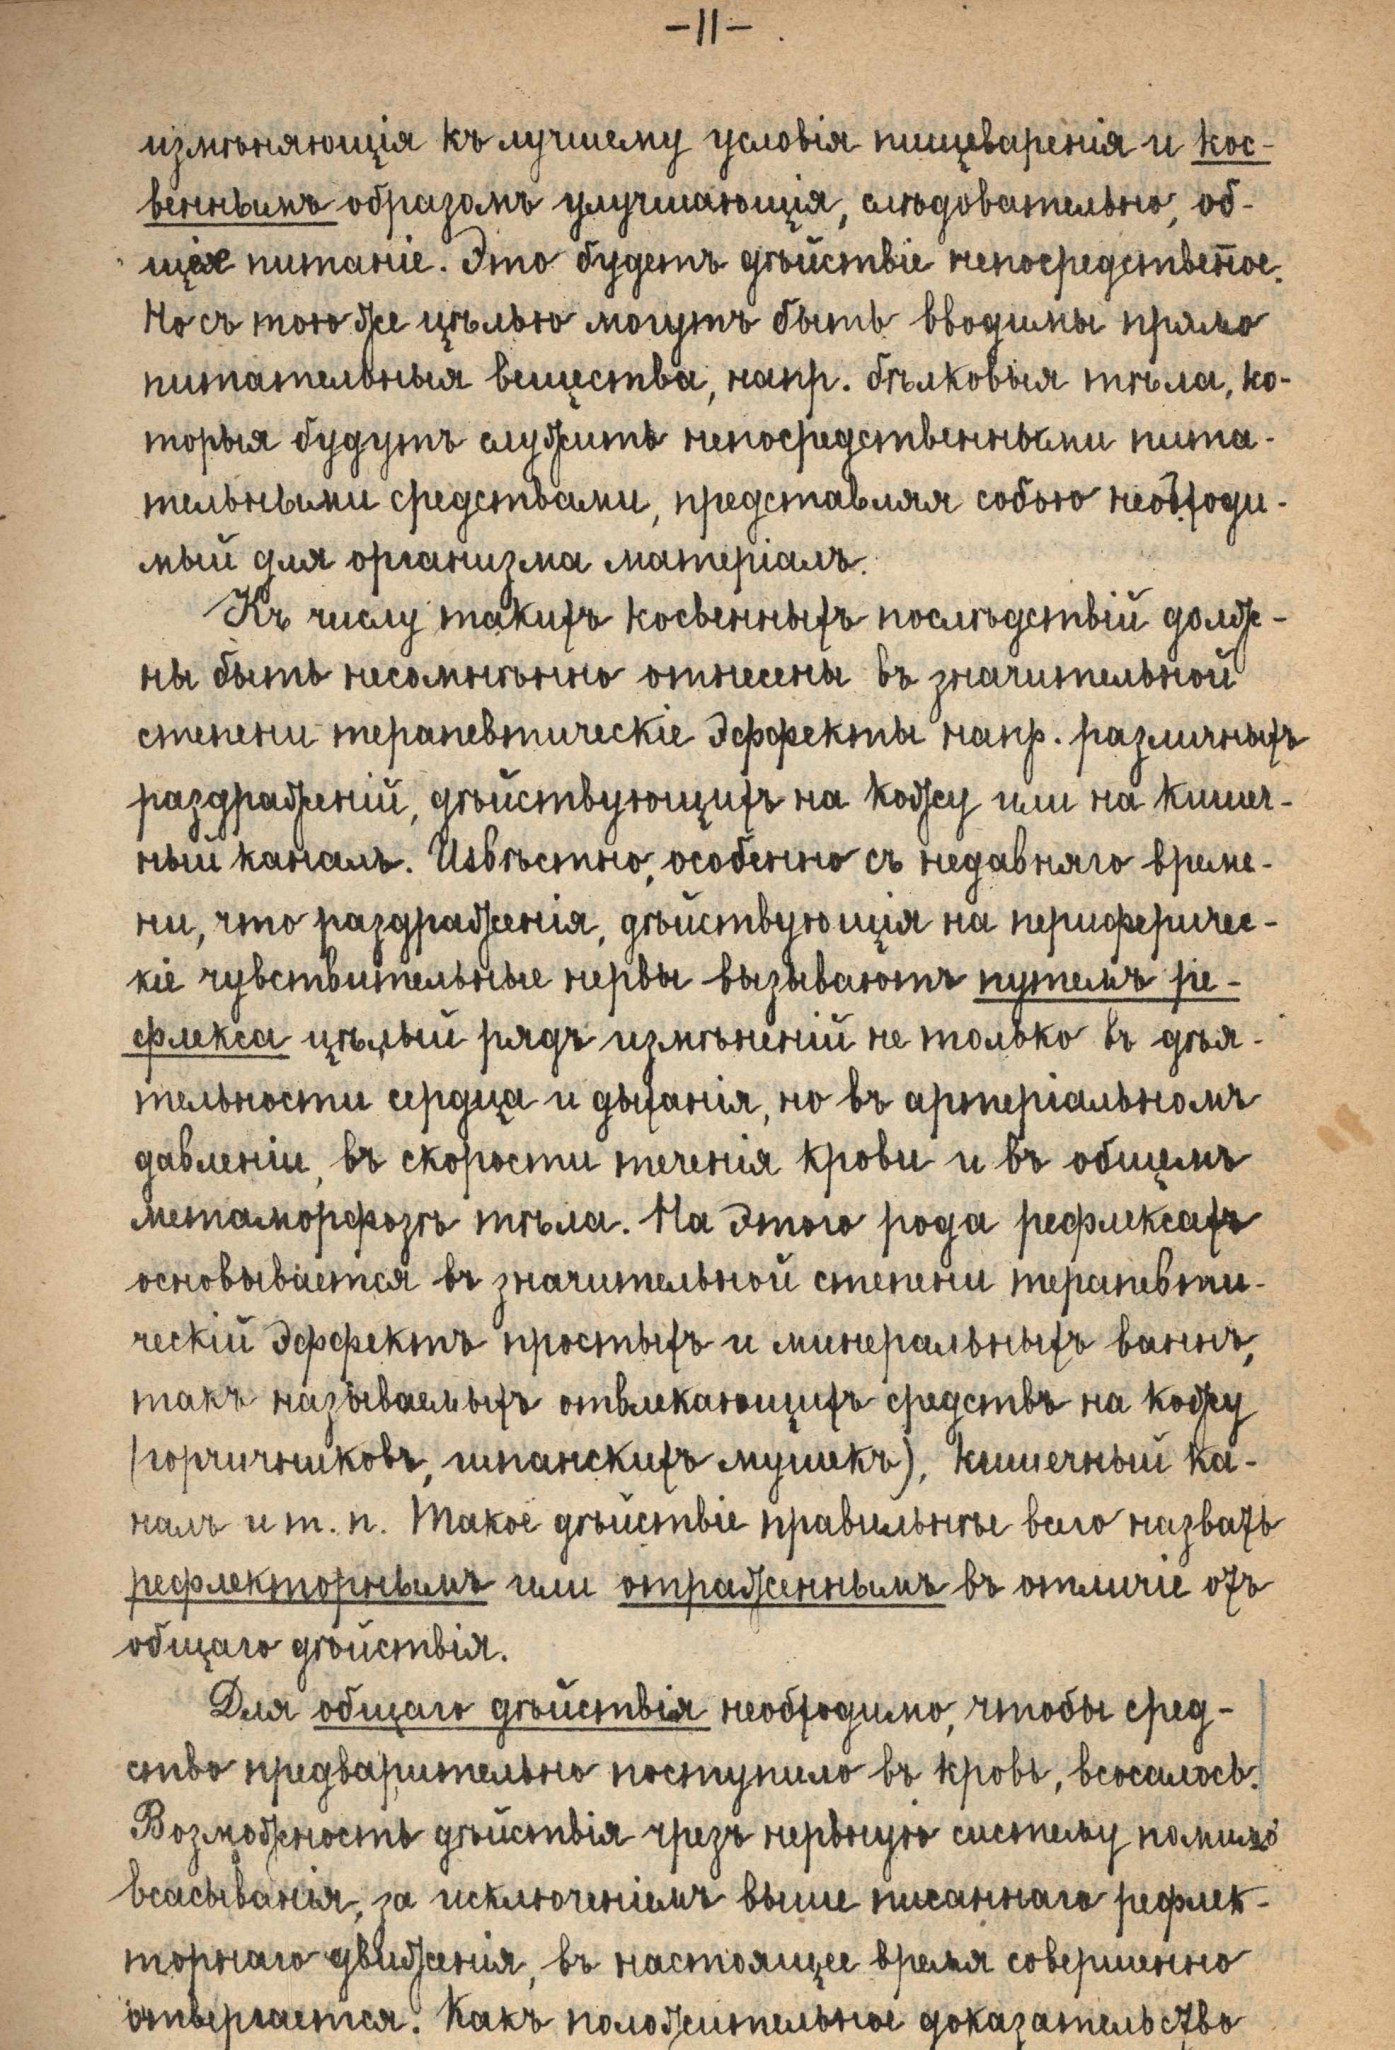 -11-.
измѣняющія къ лучшему условія пищеваренія и кос-
веннымъ образомъ улучшающія, слѣдовательно, об-
щее питаніе. Это будетъ дѣйствіе непосредствен̅ое.
Но съ тою же цѣлью могутъ быть вводимы прямо
питательныя вещества, напр. бѣлковыя тѣла, ко-
торыя будутъ служить непосредственными пита-
тельными средствами, представляя собою необходи-
мый для организма матеріалъ.
Къ числу такихъ косвенныхъ послѣдствій долж-
ны быть несомнѣнно отнесены въ значительной
степени терапевтическіе эффекты напр. различныхъ
раздраженій, дѣйствующихъ на кожу или на кишеч-
ный каналъ. Извѣстно, особенно съ недавняго време-
ни, что раздраженія, дѣйствующія на периферичес-
кіе чувствительные нервы вызываютъ путемъ ре-
флекса цѣлый рядъ измѣненій не только въ дѣя-
тельности сердца и дыханія, но въ артеріальномъ
давленіи, въ скорости теченія крови и въ общемъ
метаморфозѣ тѣла. На этого рода рефлексахъ
основывается въ значительной степени терапевти-
ческій эффектъ простыхъ и минеральныхъ ваннъ,
такъ называемыхъ отвлекающихъ средствъ на кожу
(горчичниковъ, шпанскихъ мушекъ), кишечный ка-
налъ и т. п. Такое дѣйствіе правильнѣе всего назвать
рефлекторнымъ или отраженнымъ въ отличіе отъ
общаго дѣйствія.
Для общаго дѣйствія необходимо, чтобы сред-
ство предварительно поступило въ кровь, всосалось.
Возможность дѣйствія чрезъ нервную систему помимо
всасыванія, за исключеніемъ выше писаннаго рефлек-
торнаго движенія, въ настоящее время совершенно
отвергается. Какъ положительное доказательство